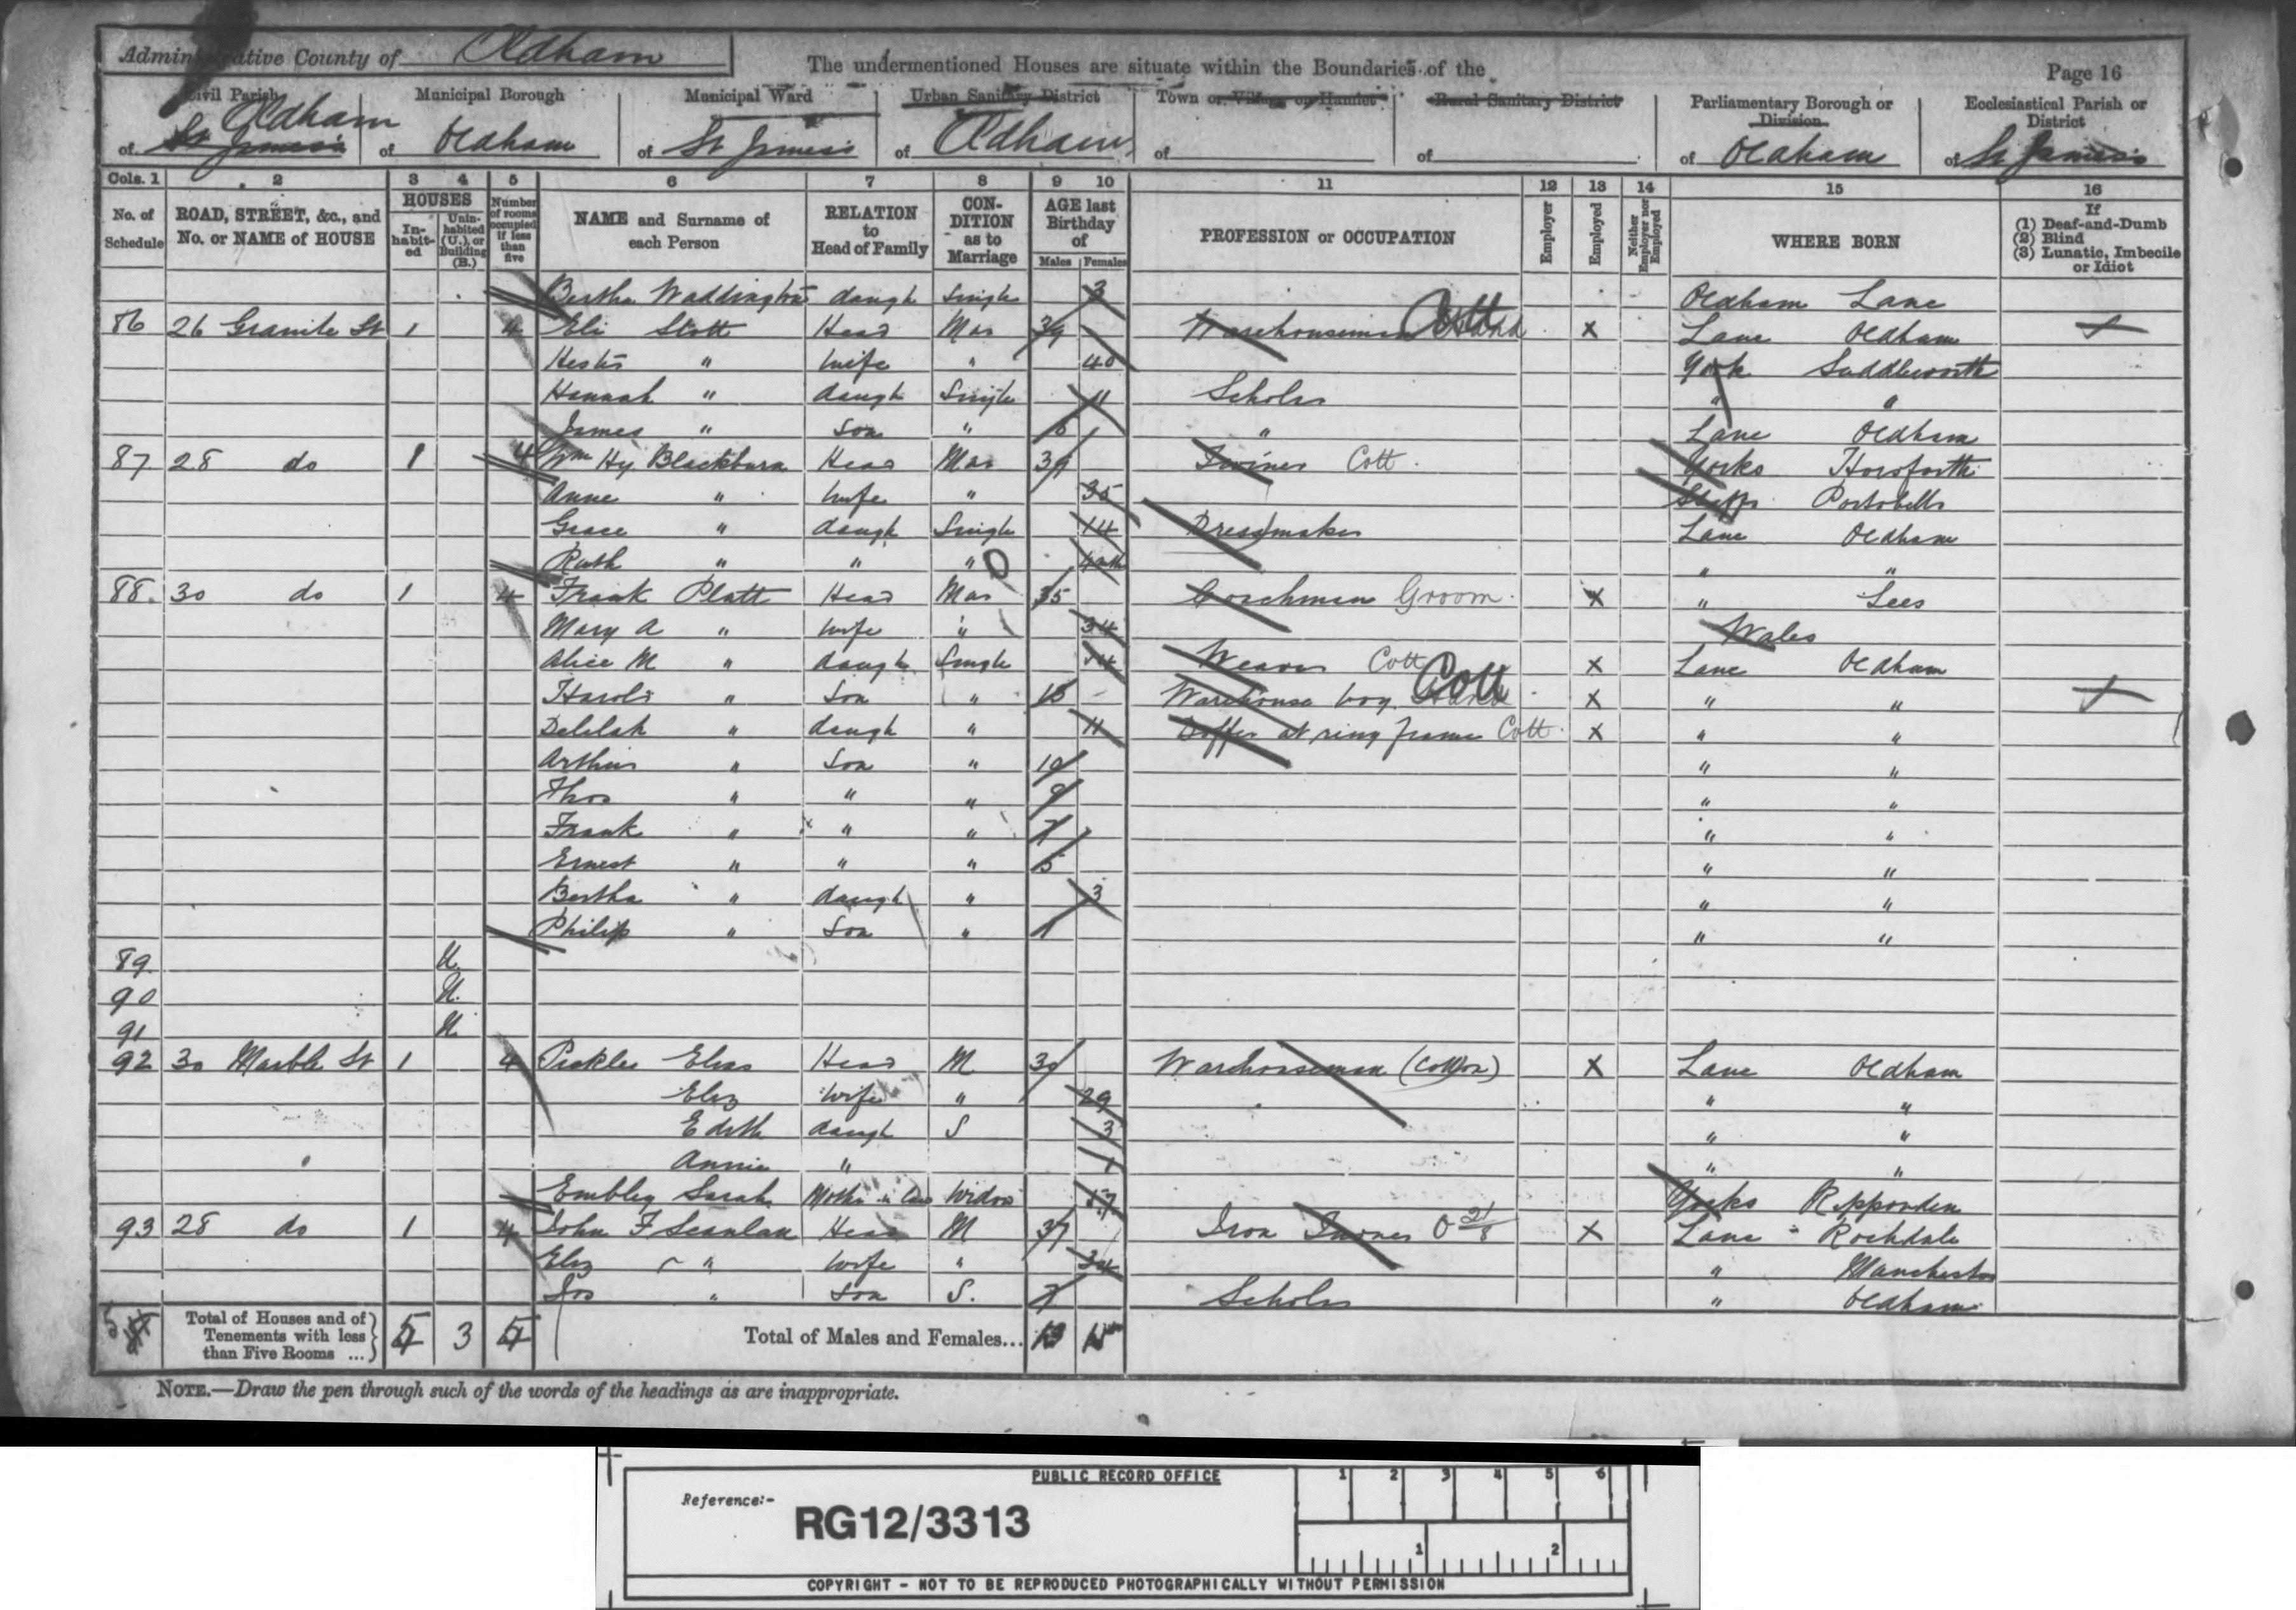 Administrative County of Oldham
The undermentioned Houses are situate within the Boundaries of the
Page 16
Civil Parish
Municipal Borough
Municipal Ward
Urban Sanitary District
Town or Village or Hamlet
Rural Sanitary District
Parliamentary Borough or Division
Ecclesiastical Parish or District
Oldham
of St James's
of Oldham
of St James's
of Oldham
of
of
of Oldham
of St James's
Cols. 1 2 3 4 5 6 7 8 9 10 11 12 13 14 15 16
No. of Schedule
ROAD, STREET, &c., and No. or NAME of HOUSE
HOUSES
Inhabited
Uninhabited (U.), or Building (B.)
Number of rooms occupied if less than five
NAME and Surname of each Person
RELATION to Head of Family
CONDITION as to Marriage
AGE last Birthday of
Males Females
PROFESSION or OCCUPATION
Employer
Employed
Neither Employer nor Employed
WHERE BORN
If
(1) Deaf-and-Dumb
(2) Blind
(3) Lunatic, Imbecile or Idiot
Bertha Waddington daugh Single 3 Oldham Lanc
86 26 Granite St 1 4 Eli Stott Head Mar 39 Warehouseman Cott x Lanc Oldham
Hester " wife " 40 York Saddleworth
Hannah " daugh Single 11 Scholar " "
James " Son " 6 " Lanc Oldham
87 28 do 1 4 Wm Hy Blackburn Head Mar 39 Twiner Cott Yorks Horsforth
Anne " wife " 35 Staffs Portobello
Grace " daugh Single 14 Dressmaker Lanc Oldham
Ruth " " " " "
88 30 do 1 4 Frank Platt Head Mar 35 Coachman Groom x " Lees
Mary A " wife " 34 Wales
Alice M " daugh Single 14 Weaver Cott x Lanc Oldham
Harold " Son " 13 Warehouse boy Cott x " "
Delilah " daugh " 11 Doffer at ring frame Cott x " "
Arthur " Son " 10 " "
Thos " " " 9 " "
Frank " " " 7 " "
Ernest " " " 5 " "
Bertha " daugh " 3 " "
Philip " Son " 1 " "
89 U
90 U
91 U
92 30 Marble St 1 4 Pickles Elias Head M 30 Warehouseman (Cotton) x Lanc Oldham
Eliz wife " 29 " "
Edith daugh S 3 " "
Annie " 1 " "
Embley Sarah Mother in law Widow 57 Yorks Ripponden
93 28 do 1 4 John F Scanlan Head M 37 Iron Turner O 21/8 x Lanc Rochdale
Eliz " wife " 34 " Manchester
Jos " Son S. 7 Scholar " Oldham
5 Total of Houses and of Tenements with less than Five Rooms ... 5 3 5 Total of Males and Females... 13 15
NOTE.—Draw the pen through such of the words of the headings as are inappropriate.
PUBLIC RECORD OFFICE
1 2 3 4 5 6
Reference:-
RG12/3313
1 2
COPYRIGHT - NOT TO BE REPRODUCED PHOTOGRAPHICALLY WITHOUT PERMISSION